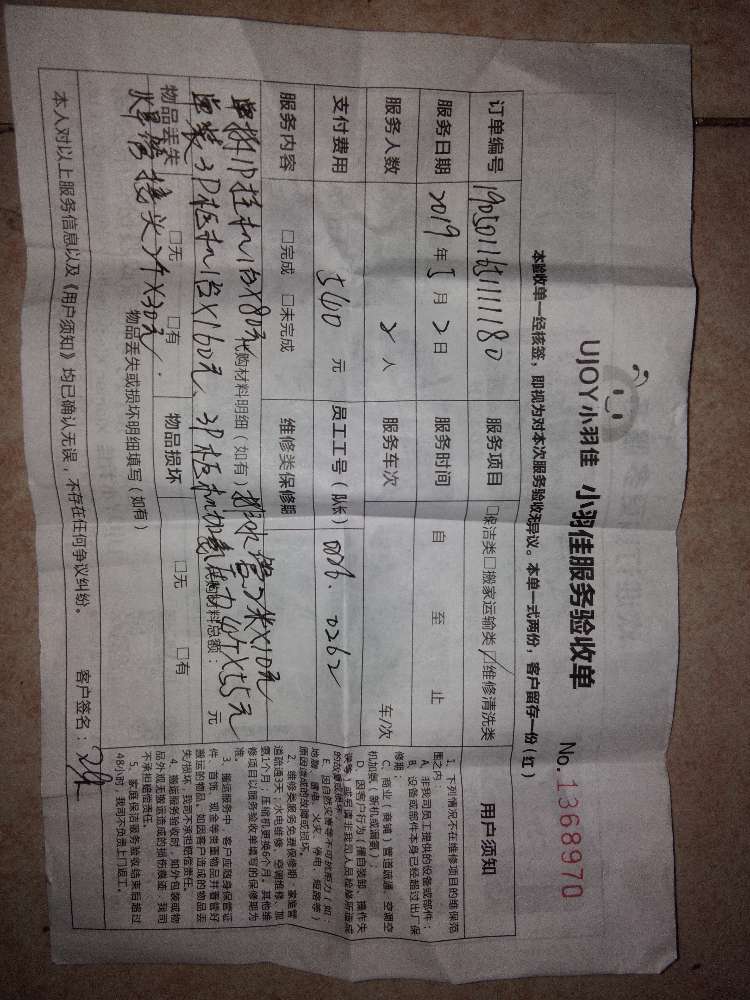 UJOY小羽佳 小羽佳服务验收单
No. 1368970
本验收单一经核签，即视为对本次服务验收无异议。本单一式两份，客户留存一份（红）
订单编号 服务项目 □保洁类□搬家运输类☑维修清洗类
服务日期 2019年5月2日 服务时间 自 至 止
服务人数 2人 服务车次 车/次
支付费用 560元 员工工号（队长） 006.0262
服务内容 □完成 □未完成 维修类保修期
代购材料明细（如有） 代购材料总额： 元
单拆1P挂机1台×80元
排水管2米×10元
单装3P柜机1台×160元、3P柜机加氟压力4个×55元
焊管接头2个×30元
物品丢失 □无 □有 物品损坏 □无 □有
物品丢失或损坏明细填写（如有）
本人对以上服务信息以及《用户须知》均已确认无误，不存在任何争议纠纷。 客户签名：
用户须知
1、下列情况不在维修项目的维保范
围之内：
A、非我司员工提供的设备或部件；
B、设备或部件本身已经超过出厂保
修期；
C、商业（商铺）管道疏通、空调空
机加氨（新机或漏氨）
D、因客户行为（擅自装卸、操作失
的故障或损坏。
E、因自然灾害等不可抗原力（如：
地震、雷电、火灾、停电、短路等）
原因造成的故障或损坏。
2、维修类服务免费保修期：家庭管
道疏通3天；水电维修、空调维修、加
氨1个月；压缩机更换6个月。其他维
修项目以服务验收单填写的保修期为
准。
3、搬运服务中，客户应随身保管证
件、首饰、现金等贵重物品并看管好
搬运的物品，如因客户造成的物品丢
失/损坏，我司不承担赔偿责任。
4、搬运服务验收时，如外包装或物
品外观无搬运造成的损伤痕迹，我司
不承担赔偿责任。
5、家庭保洁服务验收结束后超过
48小时，我司不负责上门返工。